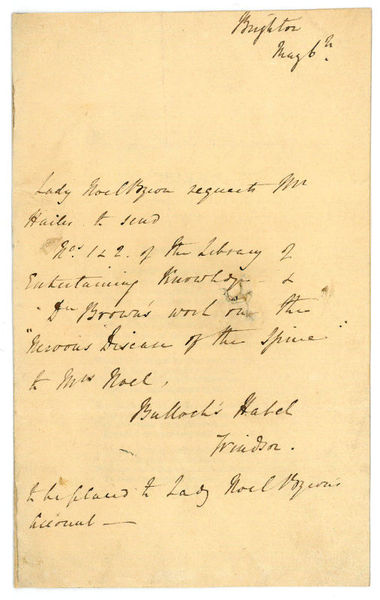 Brighton
May 6th.
Lady Noel Byron requests Mr
Hailes to send
Nos 1 & 2. of the Library of
Entertaining Knowledge &
"Dr Brown's work on the
"Nervous Disease of the Spine"
to Mrs Noel,
Bulloch's Hotel
Windsor.
to be placed to Lady Noel Byron's
account —